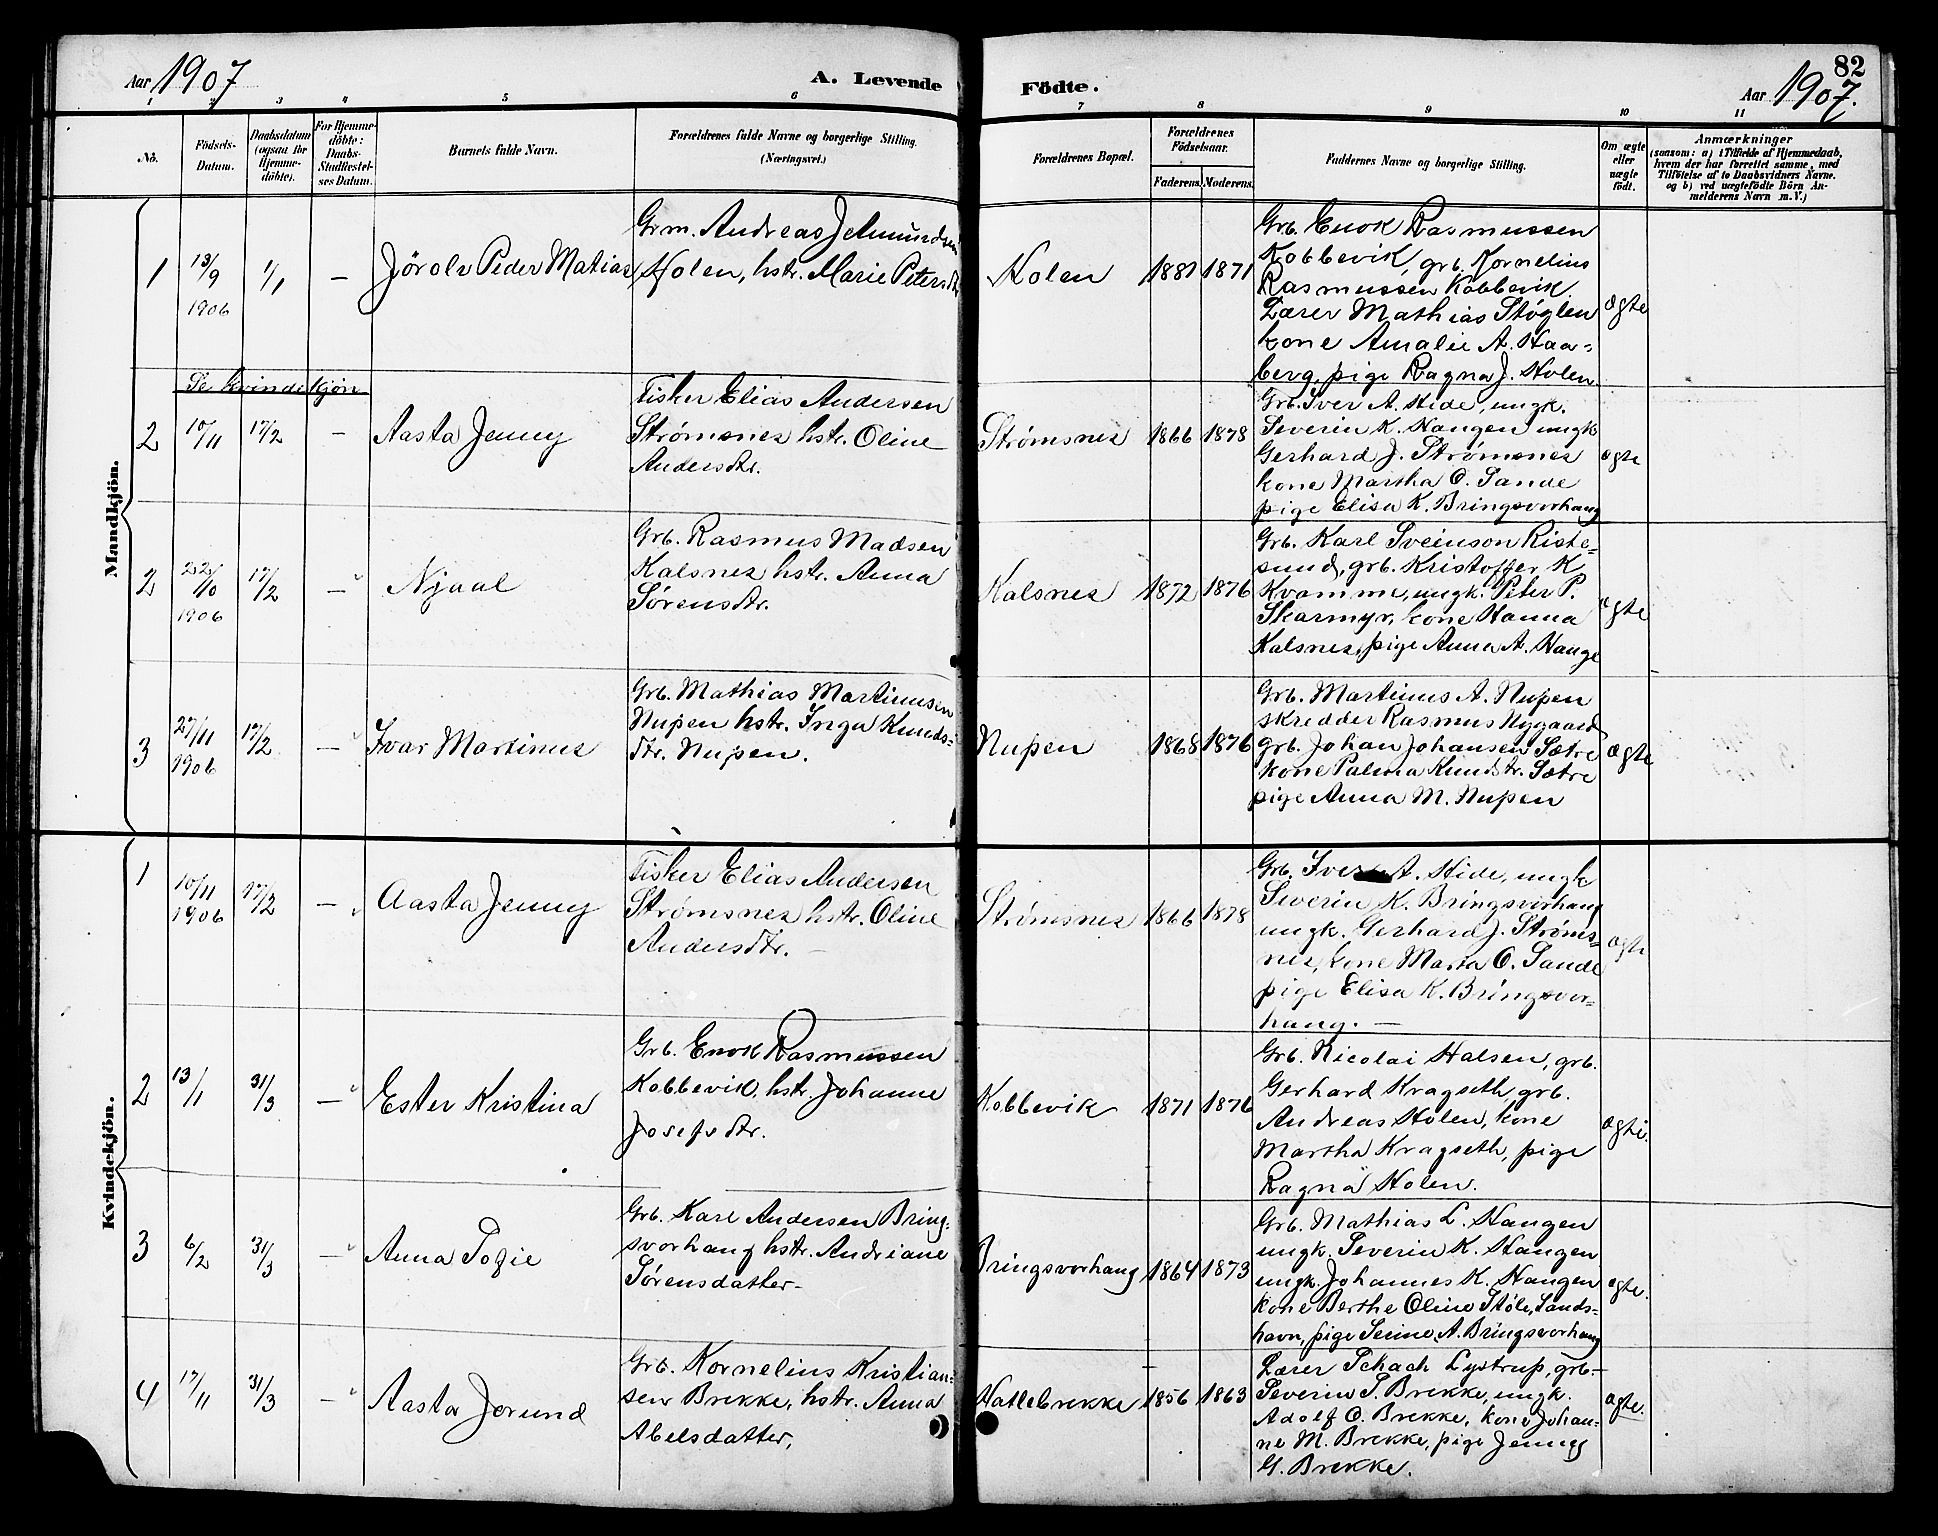 82
Aar 1907
A. Levende
Födte.
Aar 1907.
1 2 3 4 5 6 7 8 9 10 11
No.
Födsels-
Datum.
Daabsdatum
(ogsaa for
Hjemme-
döbte).
For Hjemme-
döbte:
Daabs-
Stadfæstel-
ses Datum.
Barnets fulde Navn.
Forældrenes fulde Navne og borgerlige Stilling.
(Næringsvei.)
Forældrenes Bopæl.
Forældrenes
Födselsaar.
Faderens. Moderens.
Faddernes Navne og borgerlige Stilling.
Om ægte
eller
uægte
födt.
Anmærkninger
(saasom: a) i Tilfælde af Hjemmedaab,
hvem der har forrettet samme, med
Tilföielse af to Daabsvidners Navne.
og b) ved uægtefödte Börn An-
melderens Navn m. V.)
Mandkjön.
1
13/9
1906
1/1
—
Jörolv Peder Matias
Grm. Andreas Jetmundsen
Holen, hstr. Marie Petersdtr
Holen
1871
Grb. Enok Rasmussen
Kobbevik, grb. Kornelius
Rasmussen Kobbevik.
Lærer Mathias Støylen
kone Amalie A. Haa-
berg, pige Ragna J. Holen.
ægte
Se kvindekjøn
2
10/11
17/2
—
Aasta Jenny
Fisker Elias Andersen
Strømsnes hstr. Oline
Andersdtr.
Strømsnes
1866
1878
Grb. Iver A. Hide, ungk.
Severin K. Hangen ungk
Gerhard J. Strømsnes
kone Martha O. Sande
pige Elisa K. Bringsvorhang
ægte
2
22/10
1906
17/2
—
Njaal
Grb. Rasmus Madsen
Kalsnes hstr. Anna
Sørensdtr.
Kalsnes
1872
1876
Grb. Karl Sveinson Riste-
sund, grb. Kristoffer K
Kvamme, ungk. Peter P.
Skarmyr, kone Hanna
Kalsnes, pige Anna A. Hauge
ægte
3
27/11
1906
17/2
—
Ivar Martinus
Grb. Mathias Martinusen
Nupen hstr. Inga Knuds-
dtr. Nupen.
Nupen
1868
1876
Grb. Martinus A. Nupen
skredder Rasmus Nygaard
grb. Johan Johansen Sætre
kone Palma Knudstr. Sætre
pige Anna M. Nupen
ægte
Kvindekjön.
1
10/11
1906
17/2
—
Aasta Jenny
Fisker Elias Andersen
Strømsnes hstr. Oline
Andersdtr. —
Strømsnes
1866
1878
Grb. Iver A. Hide, ungk
Severin K. Bringsvorhang
ungk. Gerhard J. Strøms-
nes, kone Marta O. Sande
pige Elisa K. Bringsvor-
hang. —
ægte
2
13/1
31/3
—
Ester Kristina
Grb. Enok Rasmussen
Kobbevik, hstr. Johanne
Josefsdtr.
Kobbevik
1871
1876
Grb. Nicolai Halsen, grb.
Gerhard Kragseth, grb.
Andreas Holen, kone
Martha Kragseth, pige
Ragna Holen.
ægte.
3
6/2
31/3
—
Anna Sofie
Grb. Karl Andersen Bring-
svorhang hstr. Andriane
Sørensdatter
Bringsvorhang
1864
1873
Grb. Mathias L. Hangen
ungk. Severin K. Hangen
ungk. Johannes K. Hangen
kone Berthe Oline Støle, Sands-
havn, pige Serine A. Bringsvorhang
ægte.
4
17/11
31/3
—
Aasta Jorund
Grb. Kornelius Kristian-
sen Brekke, hstr. Anna
Abelsdatter,
Hatlebrekke
1856
1863
Lærer Schach Lystrup, grb-
Severin S. Brekke, ungk.
Adolf O. Brekke, kone Johan-
ne M. Brekke, pige Jenny
G. Brekke.
ægte.